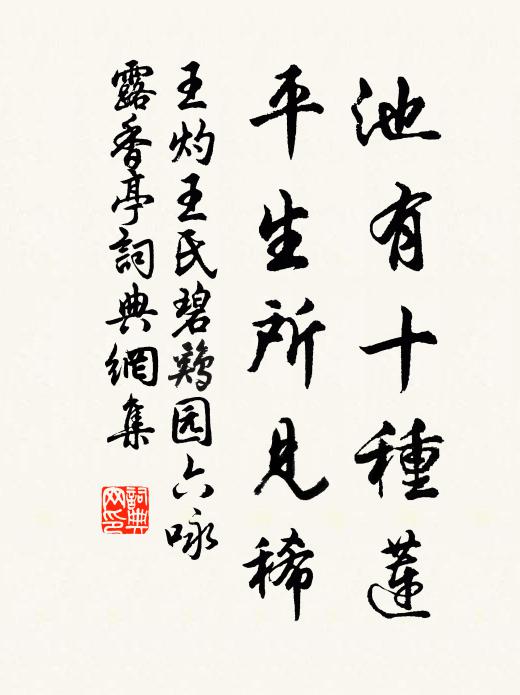 池有十種蓮
平生所見稀
王灼王氏碧鷄园六咏
露香亭詞典網集
詞典网印